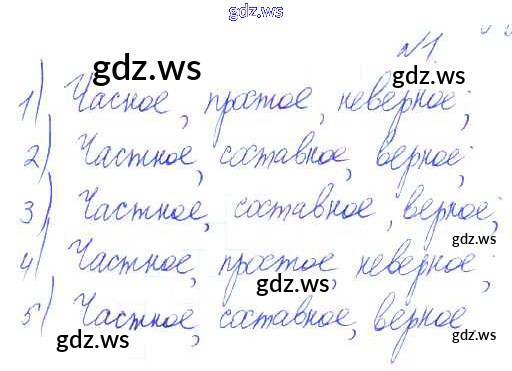 gdz.ws
№1
gdz.ws
1) Часное, простое, неверное;
2) Частное, составное, верное;
3) Частное, составное, верное;
gdz.ws
4) Частное, простое, неверное;
gdz.ws
5) Частное, составное, верное.
gdz.ws
gdz.ws